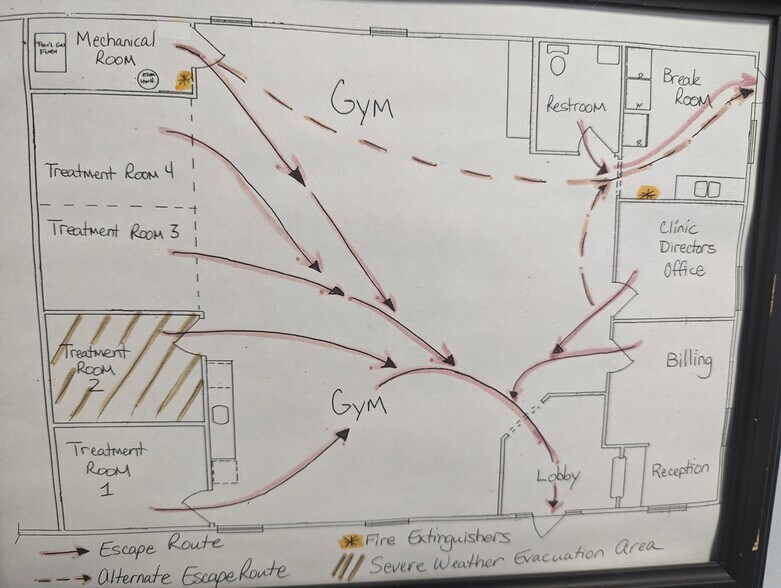 Mechanical
Room
Elec.
Gym
Restroom
Break
Room
D
W
R
Treatment Room 4
Treatment Room 3
Clinic
Directors
Office
Treatment
Room
2
Gym
Billing
Treatment
Room
1
Lobby
Reception
Escape Route
Fire Extinguishers
Alternate Escape Route
Severe Weather Evacuation Area